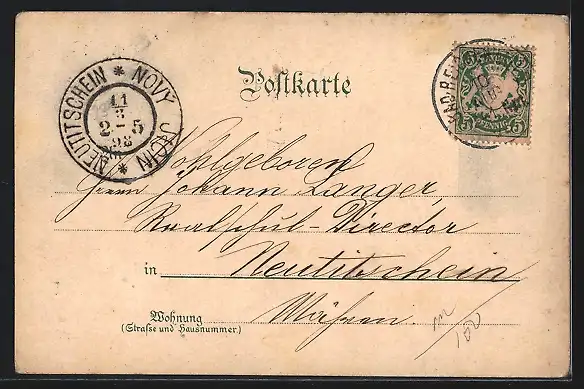 NEUTITSCHEIN * NOVY JICIN *
11
3
2-5
98
Postkarte
5
5
PFENNIG
Wohlgeboren
Herrn Johann Langer,
Realschul-Director
in Neutitschein
Mähren.
Wohnung
(Straße und Hausnummer.)